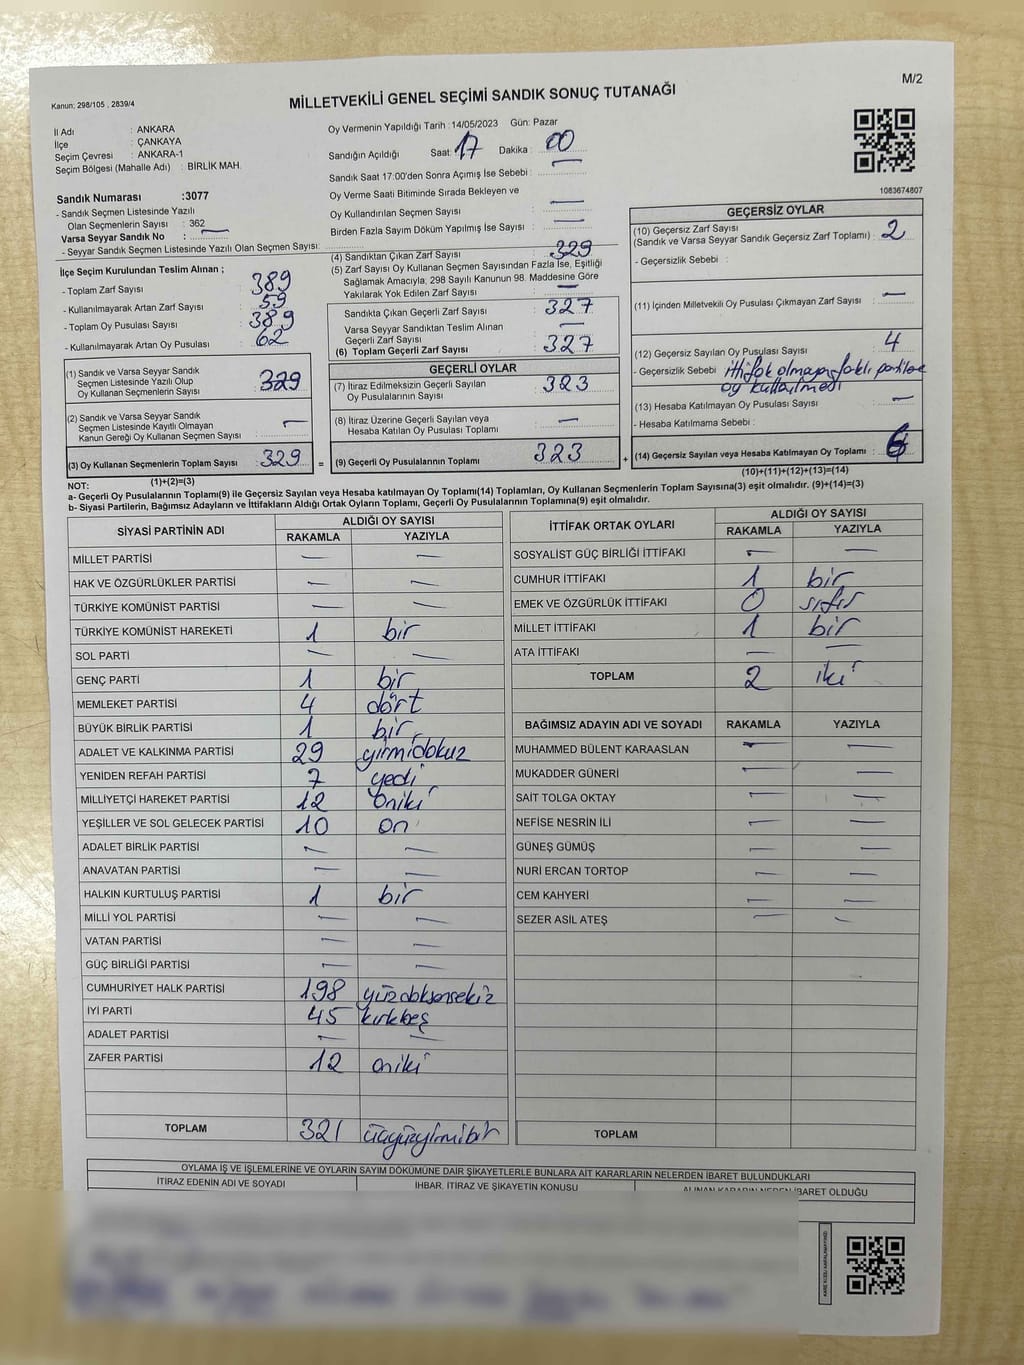 M/2
Kanun; 298/105 , 2839/4
MİLLETVEKİLİ GENEL SEÇİMİ SANDIK SONUÇ TUTANAĞI
İl Adı : ANKARA
İlçe : ÇANKAYA
Seçim Çevresi : ANKARA-1
Seçim Bölgesi (Mahalle Adı) : BİRLİK MAH.
Oy Vermenin Yapıldığı Tarih :14/05/2023 Gün: Pazar
Sandığın Açıldığı Saat: 17 Dakika : 00
Sandık Saat 17:00'den Sonra Açımış İse Sebebi : —
Oy Verme Saati Bitiminde Sırada Bekleyen ve
Oy Kullandırılan Seçmen Sayısı : —
Birden Fazla Sayım Döküm Yapılmış İse Sayısı : —
Sandık Numarası :3077
- Sandık Seçmen Listesinde Yazılı
Olan Seçmenlerin Sayısı : 362
Varsa Seyyar Sandık No : —
- Seyyar Sandık Seçmen Listesinde Yazılı Olan Seçmen Sayısı:
1083674807
İlçe Seçim Kurulundan Teslim Alınan ;
- Toplam Zarf Sayısı : 389
- Kullanılmayarak Artan Zarf Sayısı : 59
- Toplam Oy Pusulası Sayısı : 389
- Kullanılmayarak Artan Oy Pusulası : 62
(1) Sandık ve Varsa Seyyar Sandık
Seçmen Listesinde Yazılı Olup
Oy Kullanan Seçmenlerin Sayısı : 329
(2) Sandık ve Varsa Seyyar Sandık
Seçmen Listesinde Kayıtlı Olmayan
Kanun Gereği Oy Kullanan Seçmen Sayısı : —
(3) Oy Kullanan Seçmenlerin Toplam Sayısı : 329
(1)+(2)=(3)
(4) Sandıktan Çıkan Zarf Sayısı : 329
(5) Zarf Sayısı Oy Kullanan Seçmen Sayısından Fazla İse, Eşitliği
Sağlamak Amacıyla, 298 Sayılı Kanunun 98. Maddesine Göre
Yakılarak Yok Edilen Zarf Sayısı : —
Sandıkta Çıkan Geçerli Zarf Sayısı : 327
Varsa Seyyar Sandıktan Teslim Alınan
Geçerli Zarf Sayısı : —
(6) Toplam Geçerli Zarf Sayısı : 327
GEÇERLİ OYLAR
(7) İtiraz Edilmeksizin Geçerli Sayılan
Oy Pusulalarının Sayısı : 323
(8) İtiraz Üzerine Geçerli Sayılan veya
Hesaba Katılan Oy Pusulası Toplamı : —
= (9) Geçerli Oy Pusulalarının Toplamı : 323 +
GEÇERSİZ OYLAR
(10) Geçersiz Zarf Sayısı
(Sandık ve Varsa Seyyar Sandık Geçersiz Zarf Toplamı) : 2
- Geçersizlik Sebebi :
(11) İçinden Milletvekili Oy Pusulası Çıkmayan Zarf Sayısı : —
(12) Geçersiz Sayılan Oy Pusulası Sayısı : 4
- Geçersizlik Sebebi : ittifak olmayan farklı partilere
oy kullanılmedi
(13) Hesaba Katılmayan Oy Pusulası Sayısı : —
- Hesaba Katılmama Sebebi :
(14) Geçersiz Sayılan veya Hesaba Katılmayan Oy Toplamı : 6
(10)+(11)+(12)+(13)=(14)
NOT:
a- Geçerli Oy Pusulalarının Toplamı(9) ile Geçersiz Sayılan veya Hesaba katılmayan Oy Toplamı(14) Toplamları, Oy Kullanan Seçmenlerin Toplam Sayısına(3) eşit olmalıdır. (9)+(14)=(3)
b- Siyasi Partilerin, Bağımsız Adayların ve İttifakların Aldığı Ortak Oyların Toplamı, Geçerli Oy Pusulalarının Toplamına(9) eşit olmalıdır.
SİYASİ PARTİNİN ADI ALDIĞI OY SAYISI
RAKAMLA YAZIYLA
MİLLET PARTİSİ — —
HAK VE ÖZGÜRLÜKLER PARTİSİ — —
TÜRKİYE KOMÜNİST PARTİSİ — —
TÜRKİYE KOMÜNİST HAREKETİ 1 bir
SOL PARTİ — —
GENÇ PARTİ 1 bir
MEMLEKET PARTİSİ 4 dört
BÜYÜK BİRLİK PARTİSİ 1 bir
ADALET VE KALKINMA PARTİSİ 29 yirmidokuz
YENİDEN REFAH PARTİSİ 7 yedi
MİLLİYETÇİ HAREKET PARTİSİ 12 oniki
YEŞİLLER VE SOL GELECEK PARTİSİ 10 on
ADALET BİRLİK PARTİSİ — —
ANAVATAN PARTİSİ — —
HALKIN KURTULUŞ PARTİSİ 1 bir
MİLLİ YOL PARTİSİ — —
VATAN PARTİSİ — —
GÜÇ BİRLİĞİ PARTİSİ — —
CUMHURİYET HALK PARTİSİ 198 yüzdoksansekiz
İYİ PARTİ 45 kırkbeş
ADALET PARTİSİ — —
ZAFER PARTİSİ 12 oniki
TOPLAM 321 üçyüzyirmibir
İTTİFAK ORTAK OYLARI ALDIĞI OY SAYISI
RAKAMLA YAZIYLA
SOSYALİST GÜÇ BİRLİĞİ İTTİFAKI — —
CUMHUR İTTİFAKI 1 bir
EMEK VE ÖZGÜRLÜK İTTİFAKI 0 sıfır
MİLLET İTTİFAKI 1 bir
ATA İTTİFAKI — —
TOPLAM 2 iki
BAĞIMSIZ ADAYIN ADI VE SOYADI RAKAMLA YAZIYLA
MUHAMMED BÜLENT KARAASLAN — —
MUKADDER GÜNERİ — —
SAİT TOLGA OKTAY — —
NEFİSE NESRİN İLİ — —
GÜNEŞ GÜMÜŞ — —
NURİ ERCAN TORTOP — —
CEM KAHYERİ — —
SEZER ASİL ATEŞ — —
TOPLAM
OYLAMA İŞ VE İŞLEMLERİNE VE OYLARIN SAYIM DÖKÜMÜNE DAİR ŞİKAYETLERLE BUNLARA AİT KARARLARIN NELERDEN İBARET BULUNDUKLARI
İTİRAZ EDENİN ADI VE SOYADI İHBAR, İTİRAZ VE ŞİKAYETİN KONUSU ALINAN KARARIN NEDEN İBARET OLDUĞU